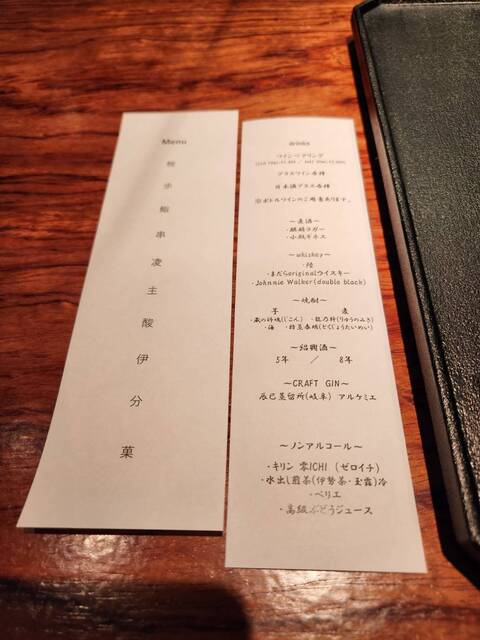 Menu
赤
鮨
串
凌
主
酸
伊
分
菓
drinks
ワインペアリング
グラスワイン各種
日本酒グラス各種
※ボトルワインのご用意あります。
〜麦酒〜
・麒麟ラガー
・小瓶ギネス
〜whiskey〜
・陸
・まだらoriginalウイスキー
・Johnnie Walker(double black)
〜焼酎〜
芋 麦
・蔵の師魂(じこん) ・龍乃鈴(りゅうのふき)
・海 ・特蒸泰明(とくじょうたいめい)
〜紹興酒〜
5年 / 8年
〜CRAFT GIN〜
辰巳蒸留所(岐阜) アルケミエ
〜ノンアルコール〜
・キリン 零ICHI (ゼロイチ)
・水出し煎茶(伊勢茶・玉露)冷
・ペリエ
・高級ぶどうジュース